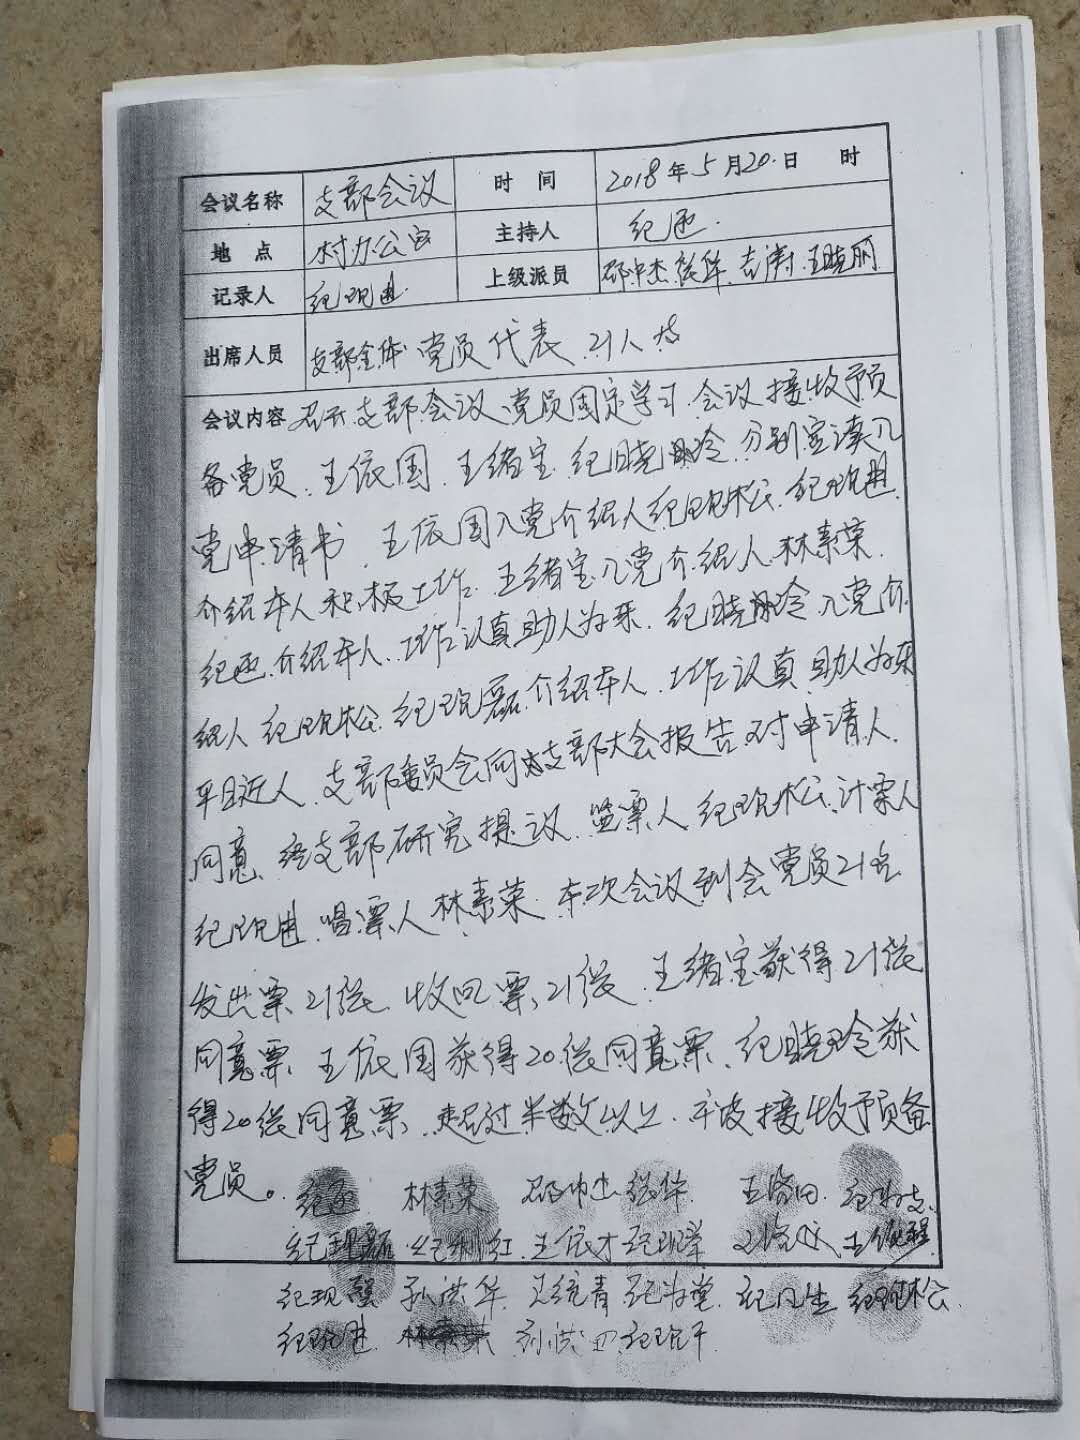 会议名称 支部会议 时 间 2018年5月20日 时
地 点 村办公室 主持人 纪迅
记录人 纪现进 上级派员 邵中杰 张华 王晓丽
出席人员 支部全体党员代表 21人
会议内容 召开支部会议、党员固定学习、会议接收预
备党员、王依国、王绪宝、纪晓玲、分别宣读入
党申请书 王依国入党介绍人纪现松、纪现进、
介绍本人积极工作、王绪宝入党介绍人林素荣、
纪迅、介绍本人、工作认真助人为乐、纪晓玲入党介
绍人纪现松、纪现磊、介绍本人、工作认真助人为乐
平易近人、支部委员会向支部大会报告、对申请人、
同意、经支部研究提议、监票人纪现松、计票人
纪现进、唱票人林素荣、本次会议到会党员21名
发出票21张、收回票、21张、王绪宝获得21张
同意票 王依国获得20张同意票、纪晓玲获
得20张同意票、超过半数以上、平波接收预备
党员。
纪迅 林素荣 邵中杰 张华
纪现磊 纪利红 王依才
纪现强 孙洪华 王绪青 纪为党 纪现松
纪现进 林素荣